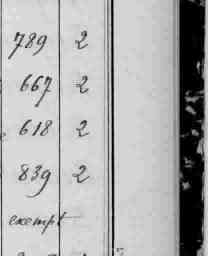 789 2
667 2
618 2
839 2
exempt